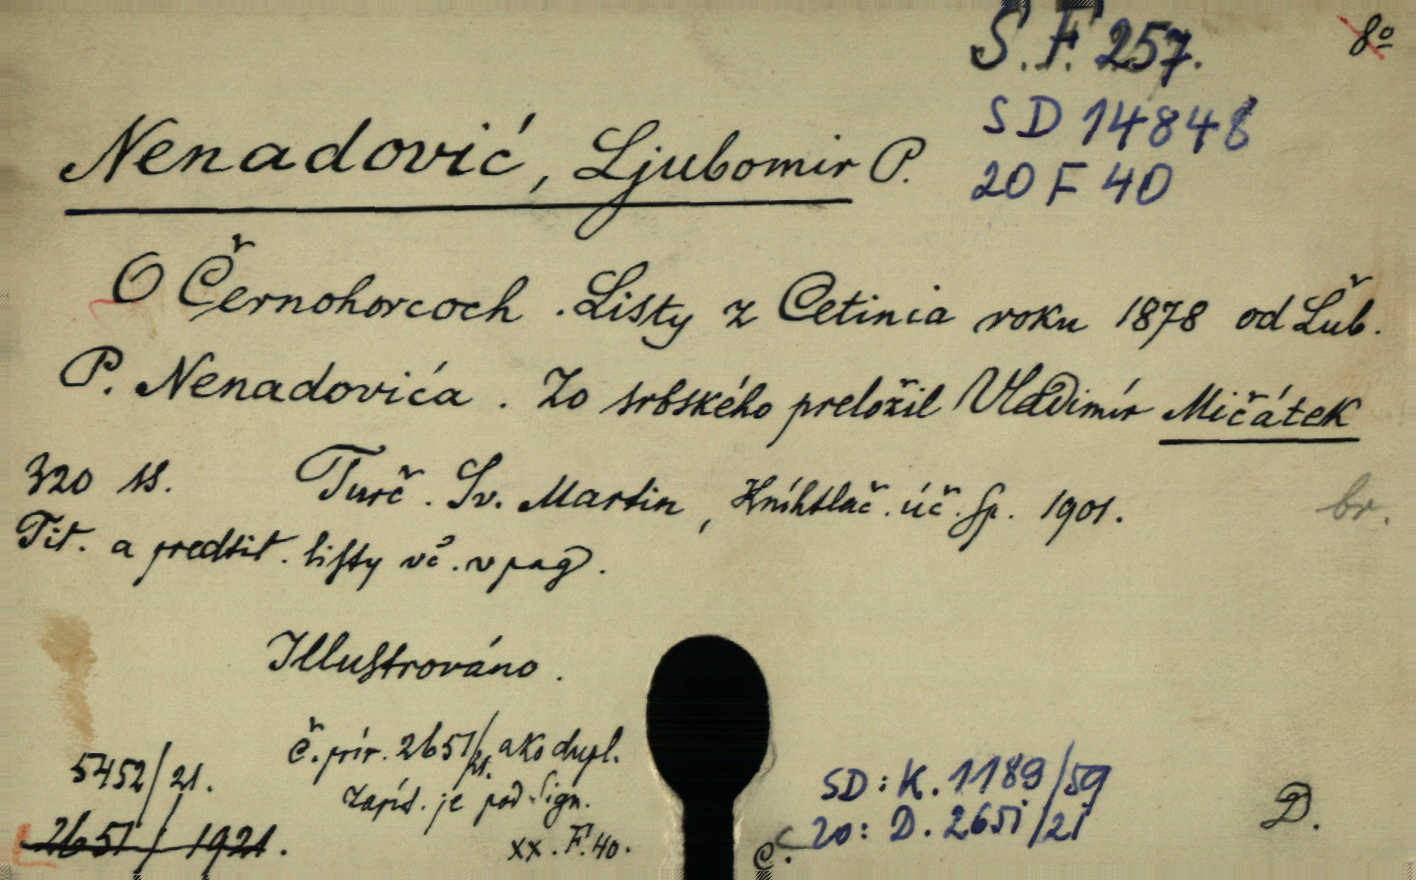 S. F. 257.
8º
SD 14848
20 F 40
Nenadović, Ljubomir P.
O Černohorcoch. Listy z Cetinia roku 1878 od Ľub.
P. Nenadovića. Zo srbského preložil Vladimír Mičátek
320 ss. Turč. Sv. Martin, Kníhtlač. úč. sp. 1901.
br.
Tit. a predtit. listy vč. v pag.
Illustrováno.
Č. prír. 2651/21. ako dupl.
zapís. je pod sign.
xx. F. 40.
5452/21.
2651/1921.
SD: K. 1189/59
20: D. 2651/21
C.
D.